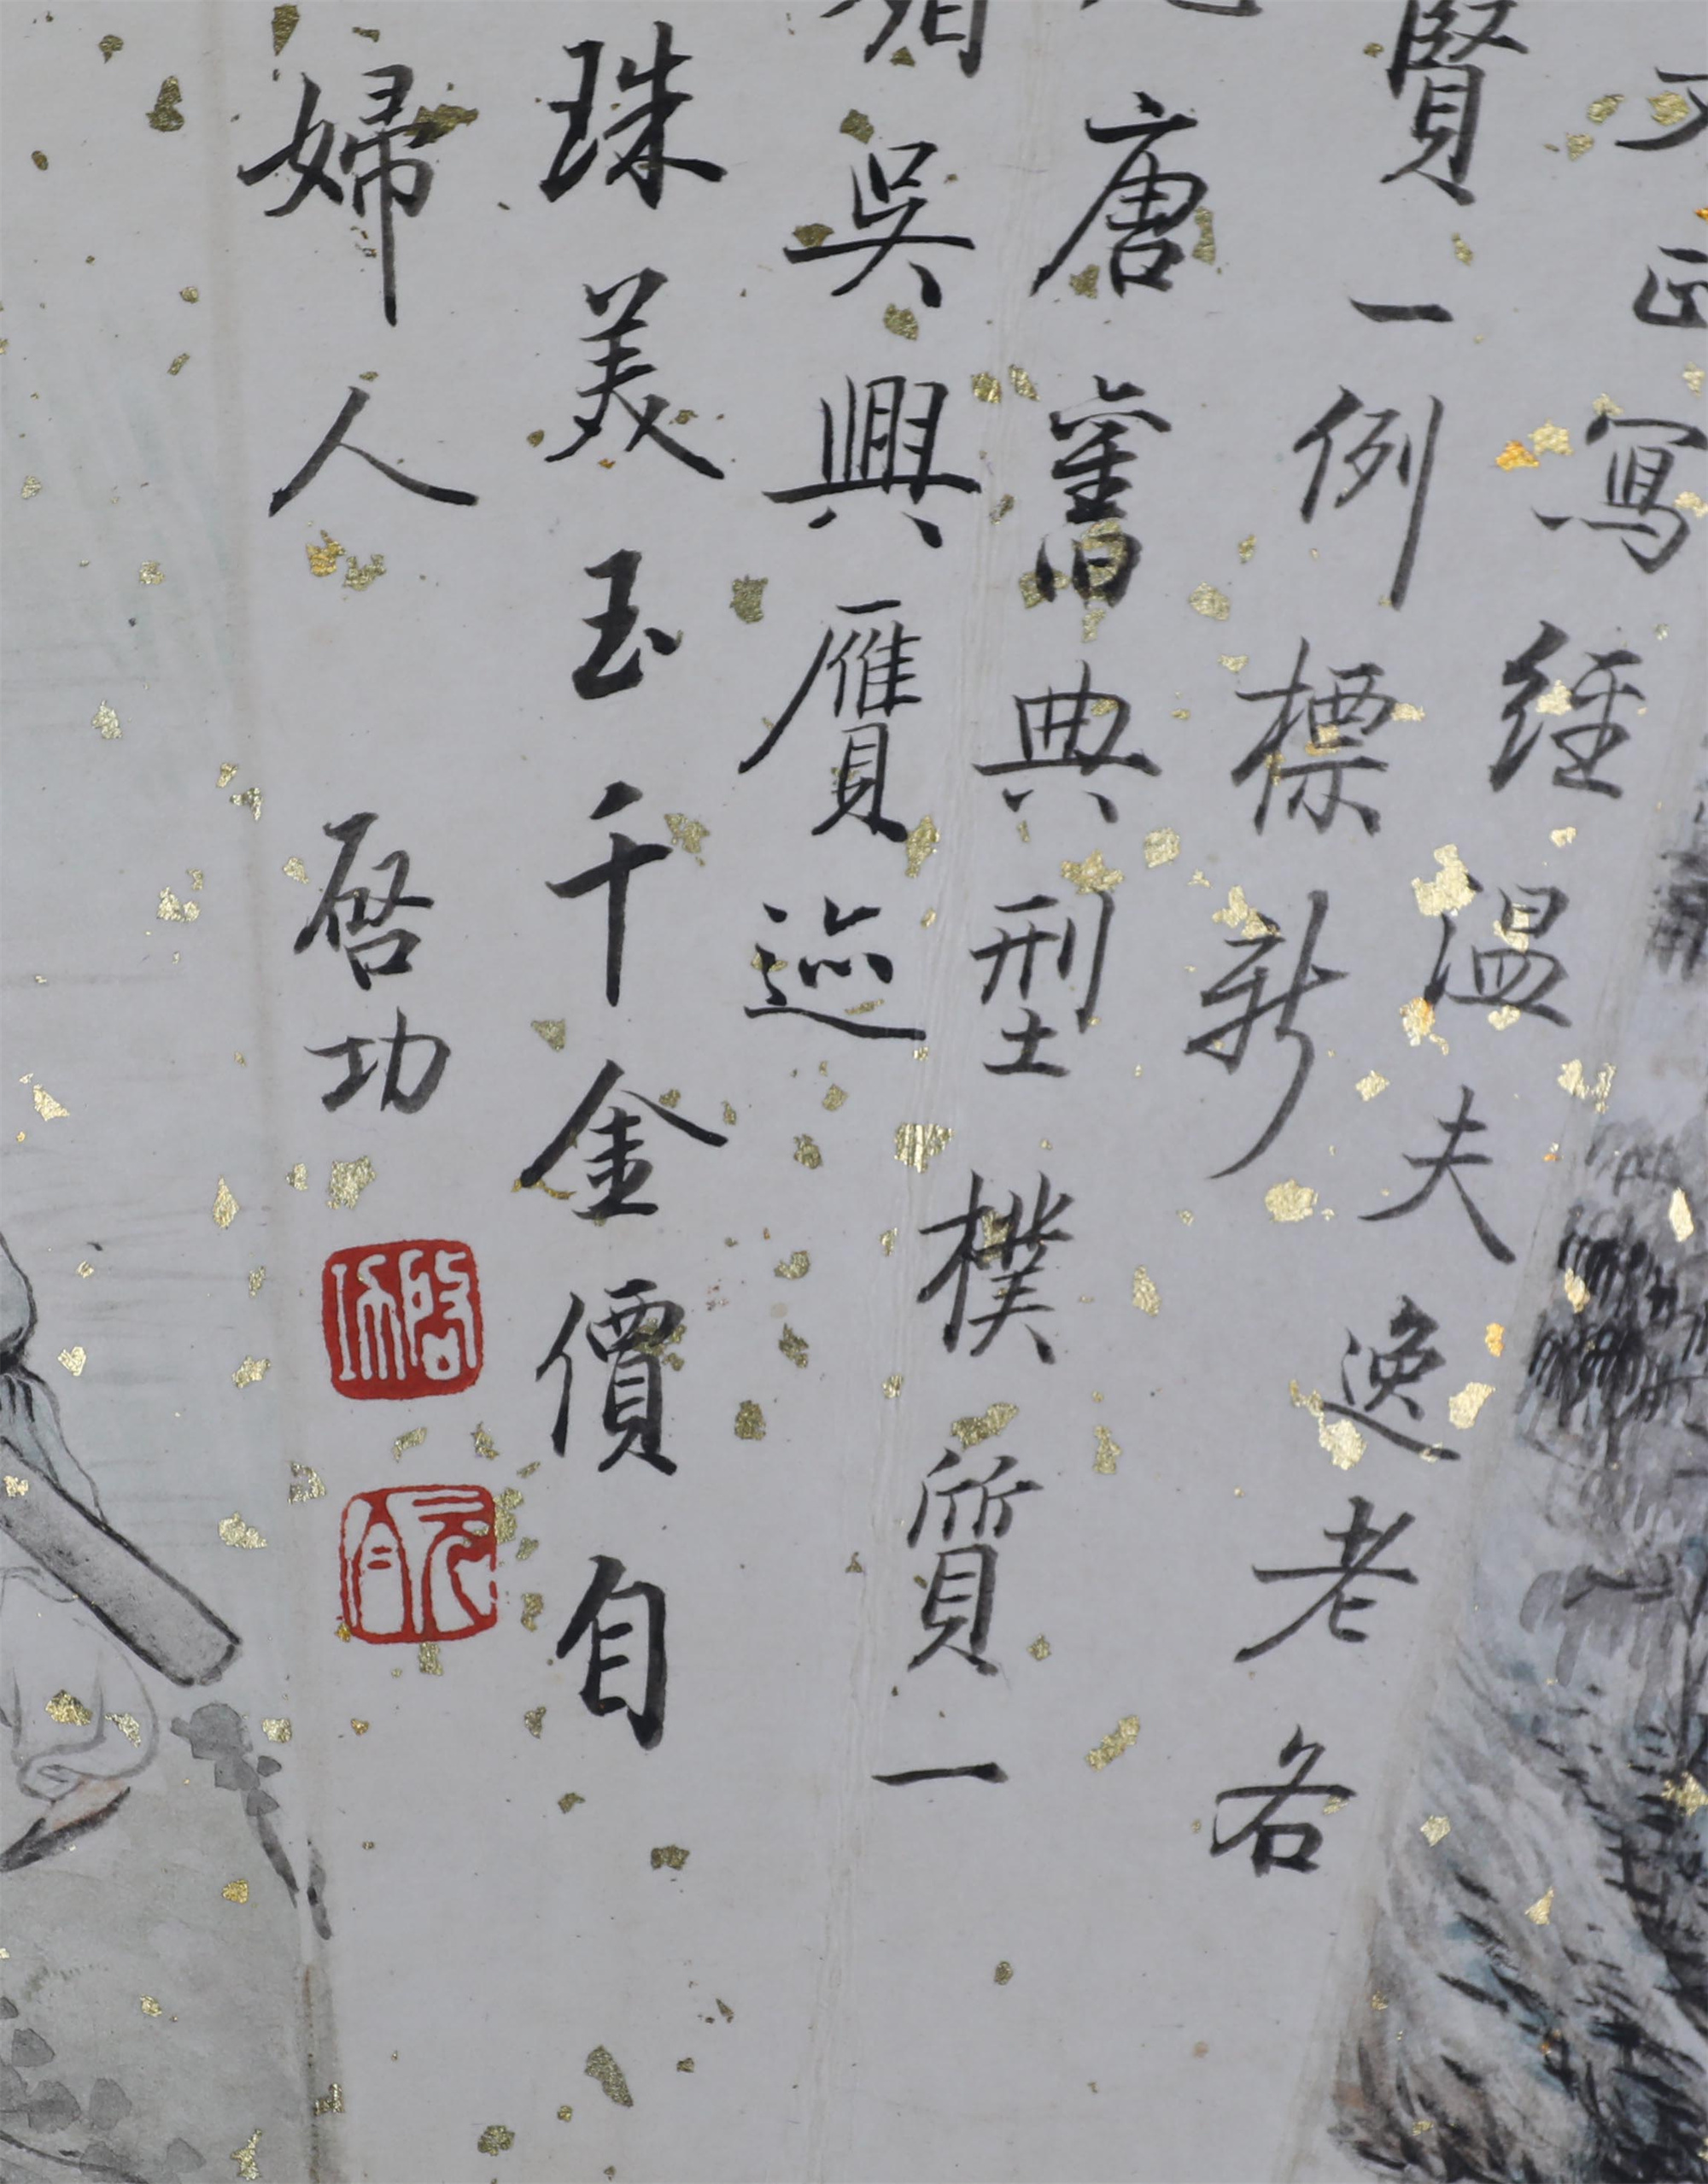 寫經溫夫逸老各
賢一例標新
唐舊典型樸質一
吳興贗迹
珠美玉千金價自
婦人 啓功
啓功
元白